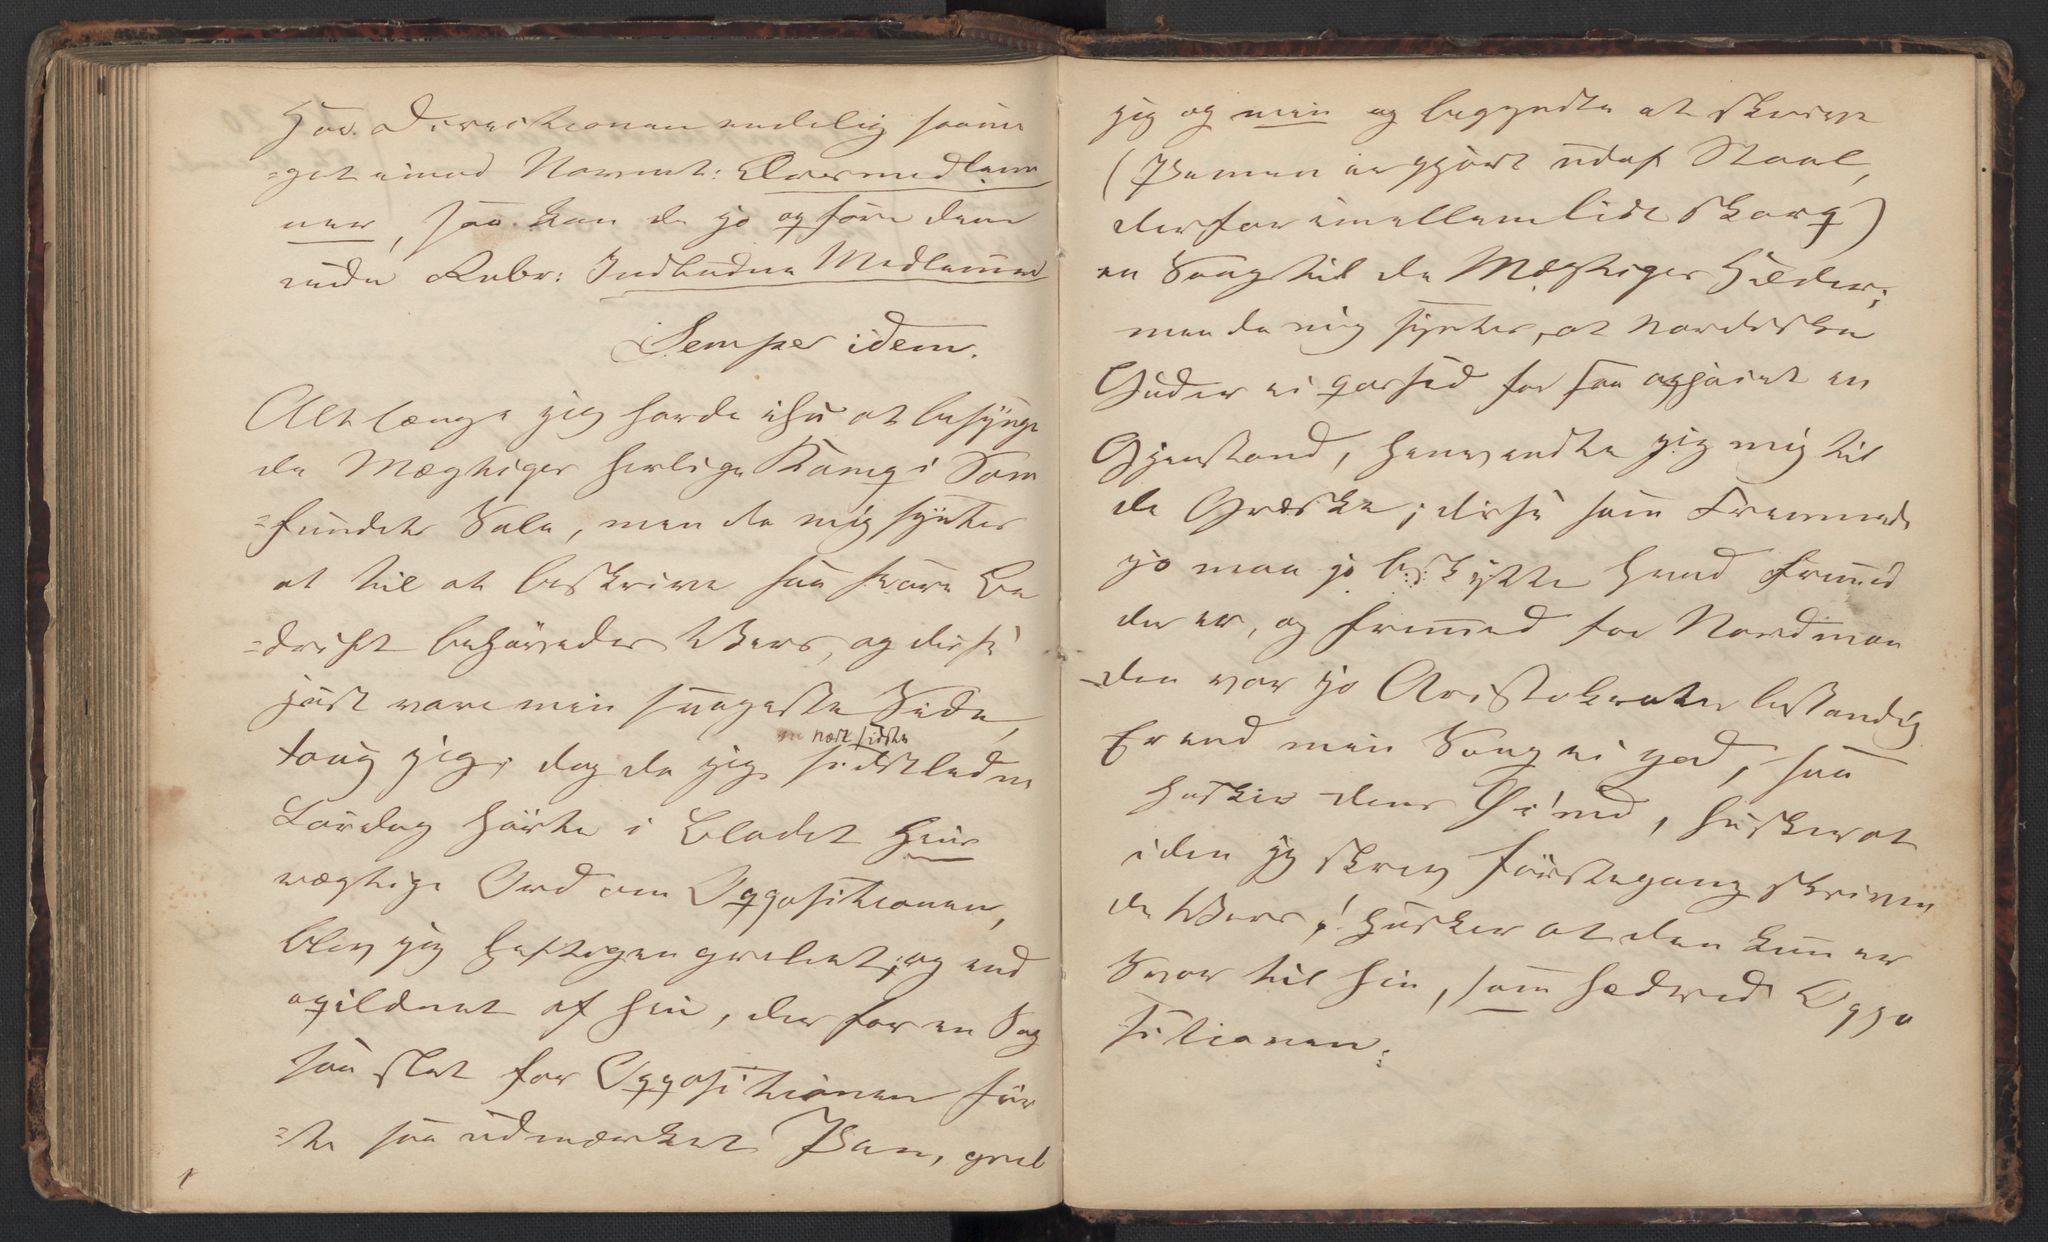 Har Directionen endelig saa me
=get imod Navnet: Æresmedlem
mer, saa kan de jo opføre dem
under Rubr: Indbudne Medlemmer
Semper idem.
Alt længe jeg havde ihu at besynge
de Mægtiges herlige Kamp i Sam
=fundets Sale, men da mig syntes
at til at beskrive saa svare Be
=drift behøvedes Vers, og disse
just vare min svageste Side,
næst sidste
taug jeg; dog da jeg sidstledne
Lørdag hørte i Bladet hans
vægtige Ord om Oppositionen,
blev jeg heftigen greben; og end
opildnet af hin, der for en Sag
saa slet for Oppositionen før
=te saa udmærket Pen, greb
jeg og min og begyndte at skrive
(Pennen er gjort udaf Staal,
derfor imellem lidt skarp)
en Sang til de Mægtiges Hæder;
men da mig syntes, at nordiske
Guder ei passed for saa ophøiet en
Gjenstand, henvendte jeg mig til
de Græske; disse som Fremmede
jo maa jo beskytte hvad fremmed
der er, og fremmed for Nordman
=den var jo Aristokrater bestandig
Er end min Sang ei god, saa
husker dens Øiemed, husker at
i den jeg skrev førstegang skriven
de Vers! husker at den kun er
Svar til hin, som hædred Oppo
sitionen: